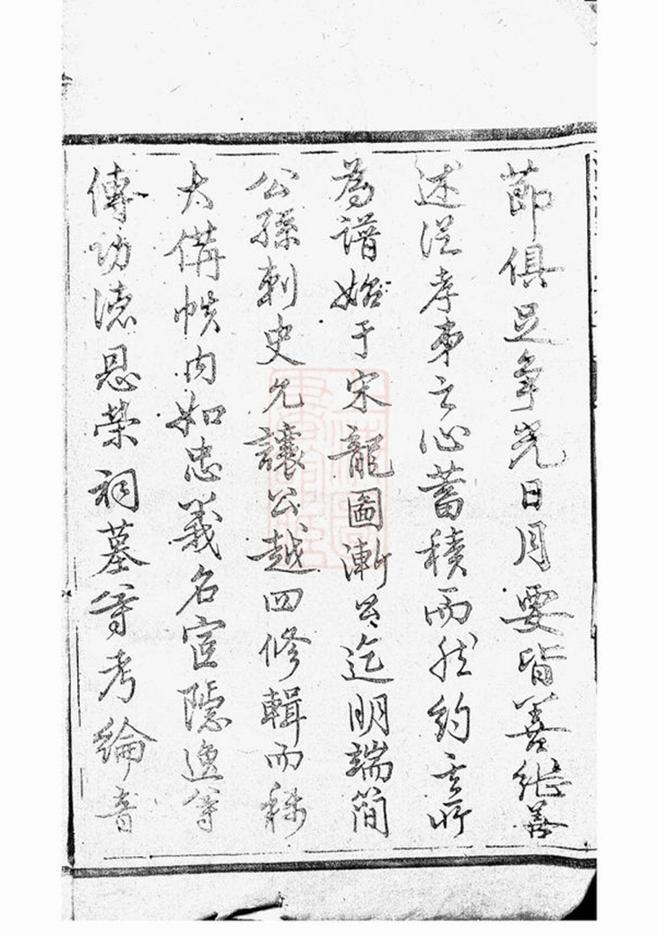 節俱足争光日月要皆善繼善
述從孝弟之心蓄積而然約言所
為譜始于宋龍圖漸公迄明端簡
公孫刺史允讓公越四修輯而稱
大備帙内如忠義名宦隱逸等
傳功德恩榮祠墓等考綸音